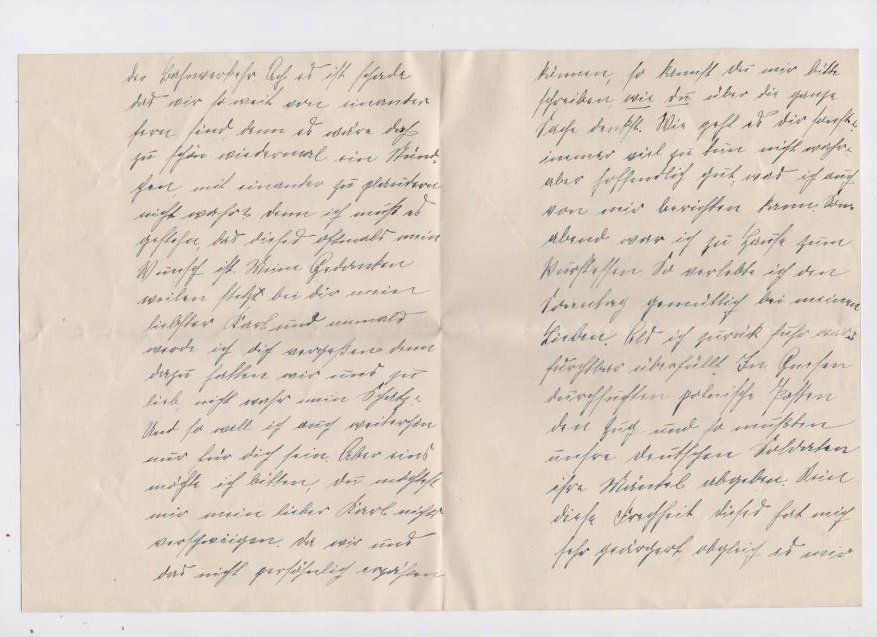 der Bahnverkehr Ach es ist schade
das wir so weit von einander
fern sind denn es wäre doch
zu schön wiedermal ein Stünd-
chen, mit einander zu plaudern
nicht wahr? denn ich muß es
gestehen, das dieses oftmals mein
Wunsch ist. Meine Gedanken
weilen stets bei dir mein
liebster Karl und niemals
werde ich dich vergeßen denn
dazu hatten wir uns zu
lieb, nicht wahr mein Schatz?
Und so will ich auch weiterhin
nur für dich sein. Aber eins
möchte ich bitten, du möchtest
mir mein lieber Karl nichts
verschweigen. Da wir uns
das nicht persöhnlich erzählen
können, so kannst du mir bitte
schreiben, wie du über die ganze
Sache denkst. Wie geht es dir sonst?
immer viel zu tun nicht wahr?
aber hoffendlich gut, was ich auch
von mir berichten kann. Son-
abend war ich zu Hause zum
Wurstessen. So verlebte ich den
Sonntag gemütlich bei meinen
Lieben. Als ich zurück fuhr war
furchtbar überfüllt. In Gnesen
durchsuchten polnische Posten
den Zug und so mußten
unsre deutschen Soldaten
ihre Mäntel abgeben. Nein
diese Frechheit, dieses hat mich
sehr geärgert, obgleich es mir